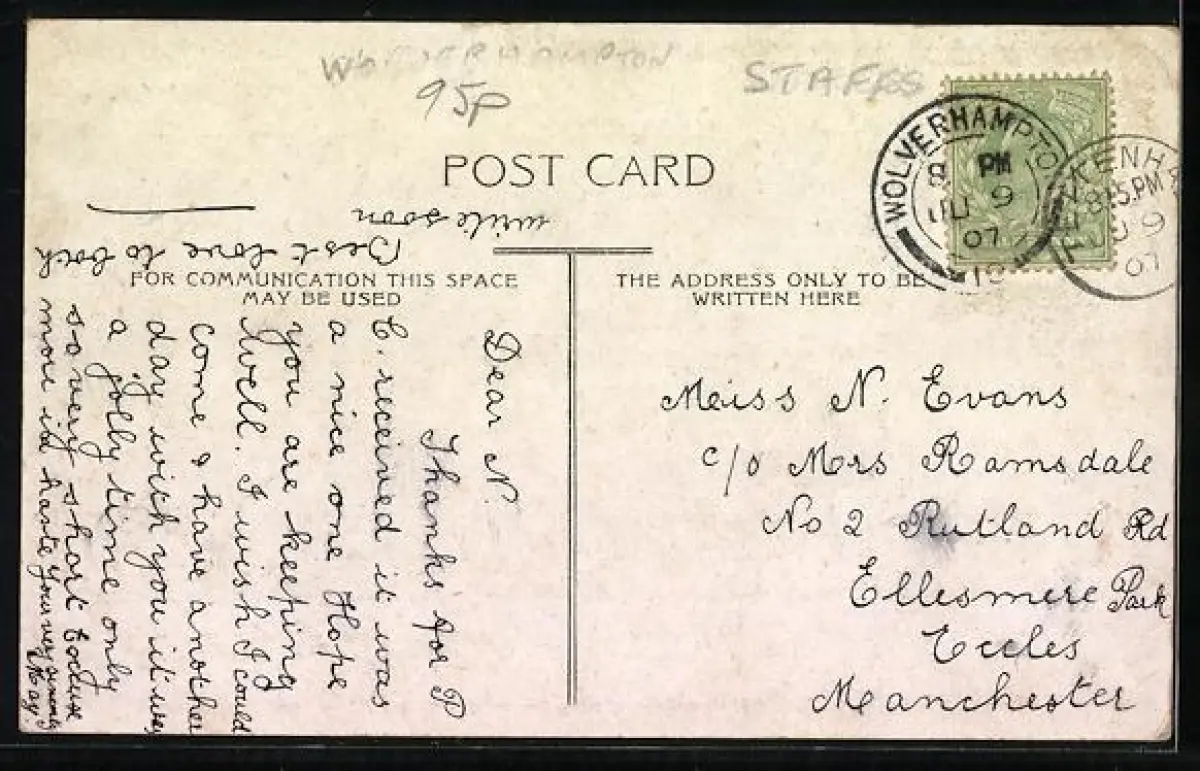 WOLVERHAMPTON
STAFFS
95p
POST CARD
WOLVERHAMPTO
8 PM
JU 9
07
KENH
8.15.PM
JU 9
07
FOR COMMUNICATION THIS SPACE
MAY BE USED
THE ADDRESS ONLY TO BE
WRITTEN HERE
Dear N.
Thanks for P
C. received it was
a nice one Hope
you are keeping
well. I wish I could
come & have another
day with you it was
a jolly time only
so very short Excuse
more in haste Yours very sincerely
May.
Best love to both
write soon
Meiss N. Evans
c/o Mrs Ramsdale
No 2 Rutland Rd
Ellesmere Park
Eccles
Manchester